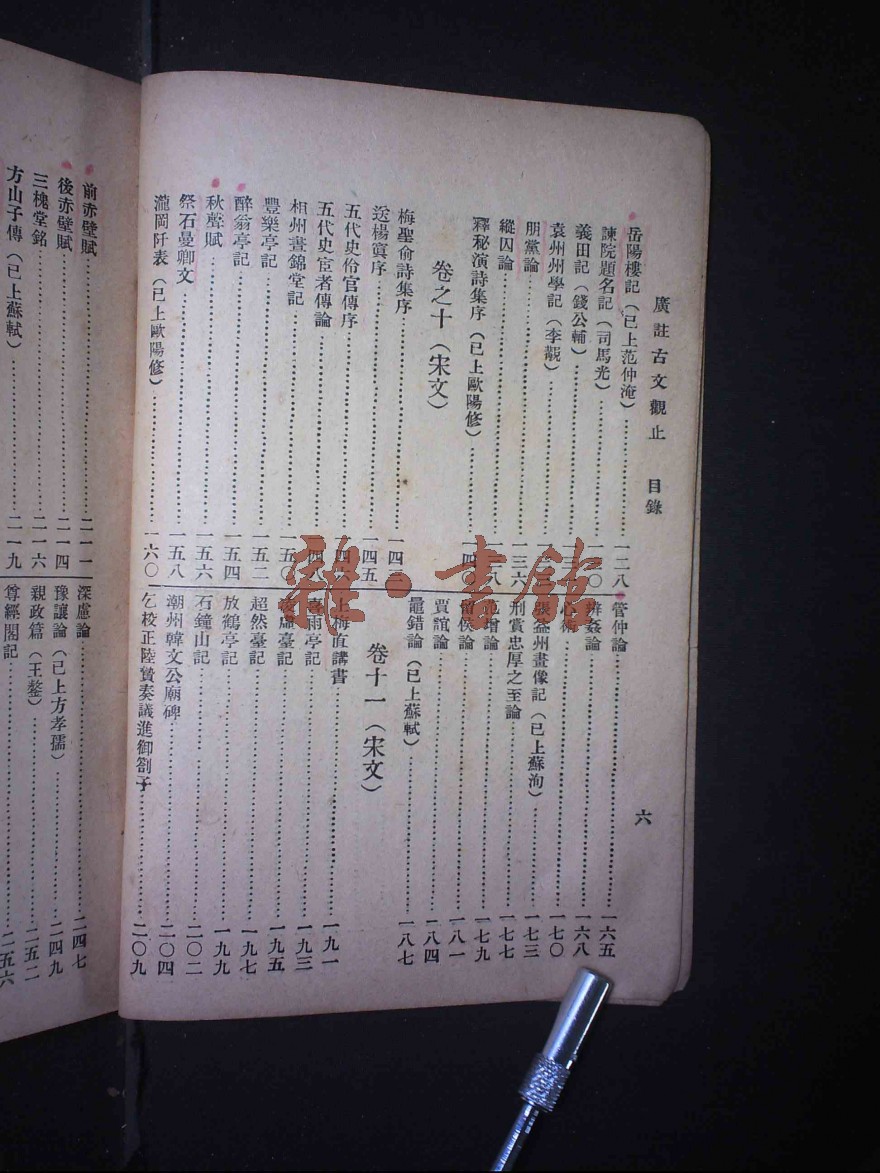 廣註古文觀止 目錄
六
岳陽樓記(已上范仲淹)一二八
諫院題名記(司馬光)一〇
義田記(錢公輔)
袁州州學記(李覯)
朋黨論一三六
縱囚論八
釋秘演詩集序(已上歐陽修)一四〇
卷之十(宋文)
梅聖俞詩集序一四
送楊寘序一四五
五代史伶官傳序
五代史宦者傳論一四八
相州晝錦堂記一五〇
豐樂亭記一五二
醉翁亭記一五四
秋聲賦一五六
祭石曼卿文一五八
瀧岡阡表(已上歐陽修)一六〇
管仲論一六五
辨姦論一六八
心術一七〇
張益州畫像記(已上蘇洵)一七三
刑賞忠厚之至論一七七
范增論一七九
留侯論一八一
賈誼論一八四
鼂錯論(已上蘇軾)一八七
卷十一(宋文)
上梅直講書一九一
喜雨亭記一九三
凌虛臺記一九五
超然臺記一九七
放鶴亭記一九九
石鐘山記二〇二
潮州韓文公廟碑二〇四
乞校正陸贄奏議進御劄子二〇九
前赤壁賦二一一
後赤壁賦二一四
三槐堂銘二一六
方山子傳(已上蘇軾)二一九
深慮論二四七
豫讓論(已上方孝孺)二四九
親政篇(王鏊)二五二
尊經閣記二五六
雜·書館